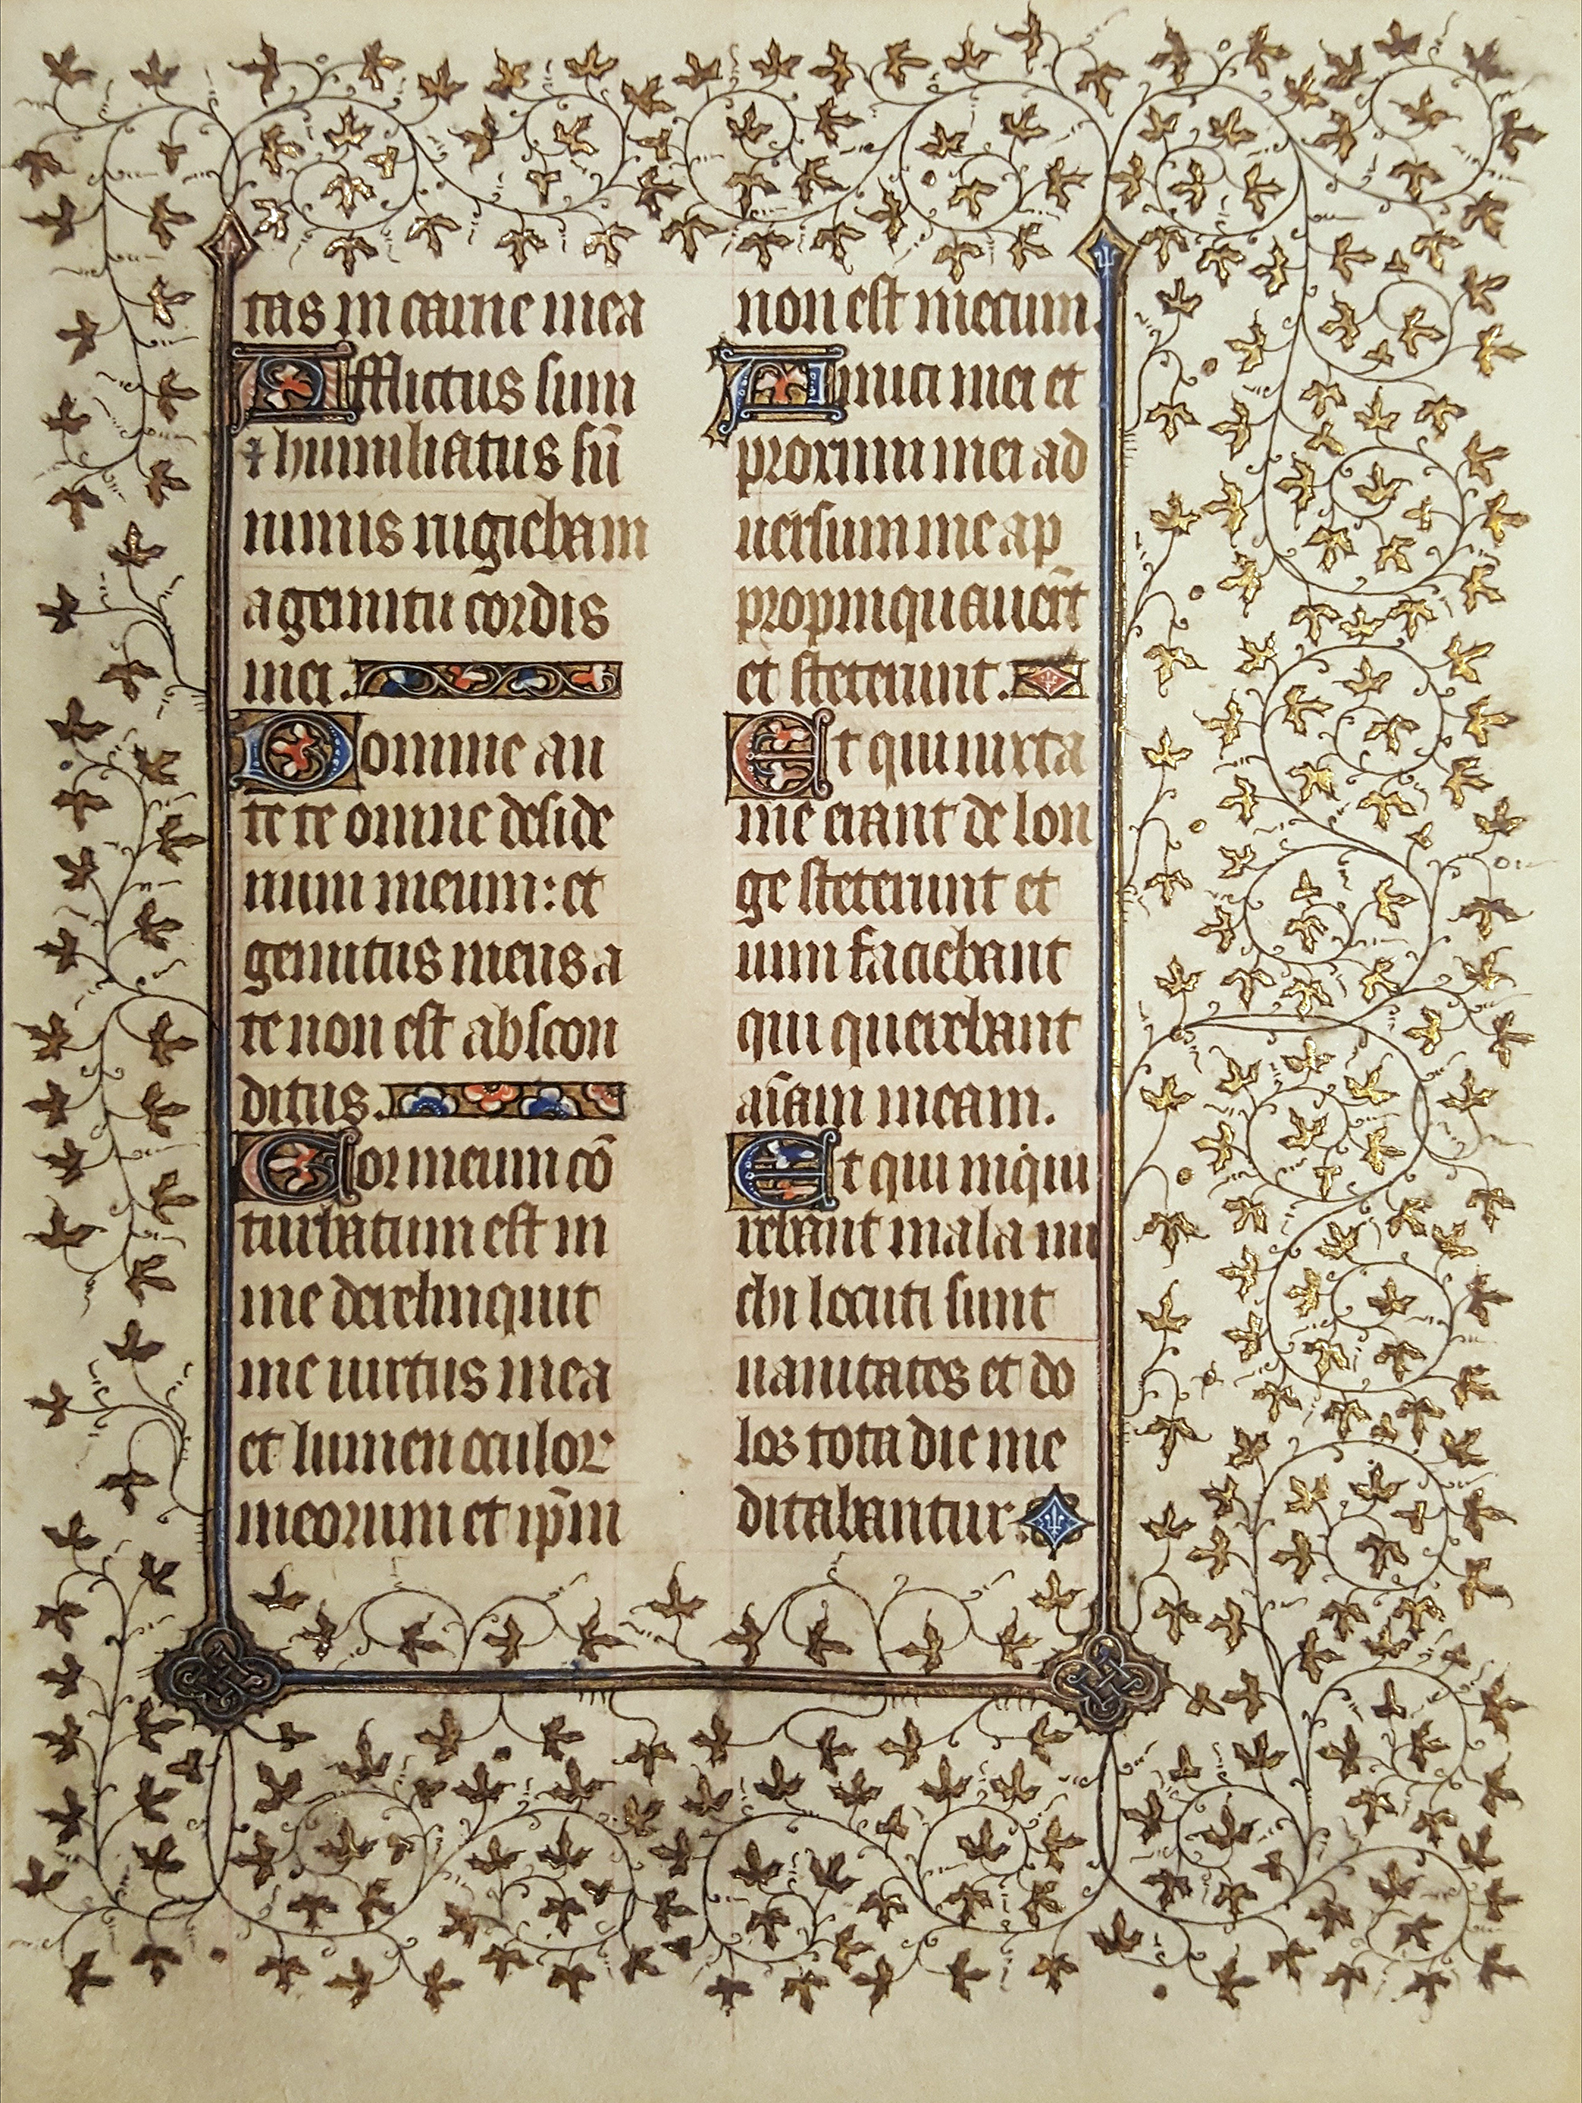 tas in carne mea
Afflictus sum
⁊ humiliatus sũ
nimis rugiebam
a gemitu cordis
mei.
Domine an
te te omne deside
rium meum: et
gemitus meus a
te non est abscon
ditus.
Cor meum cõ
turbatum est in
me dereliquit
me uirtus mea
et lumen oculor
meorum et ip̃m
non est mecum.
Amici mei et
proximi mei ad
uersum me ap
propinquauerũt
et steterunt.
Et qui iuxta
me erant de lon
ge steterunt et
uim faciebant
qui querebant
aĩam meam.
Et qui inqui
rebant mala mi
chi locuti sunt
uanitates et do
los tota die me
ditabantur.